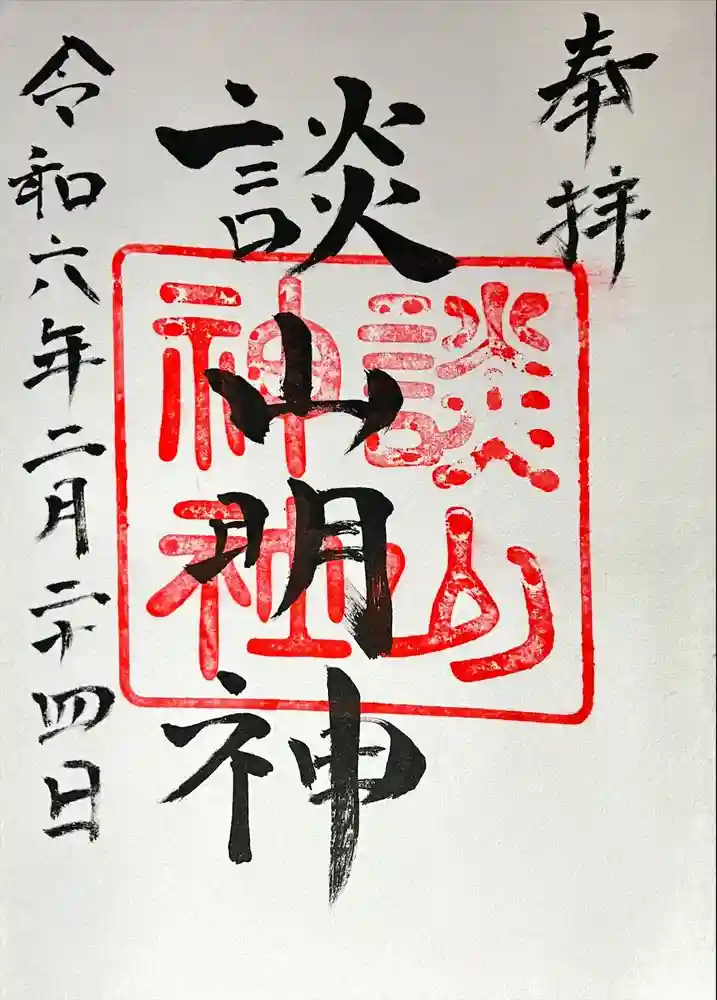 奉拝
談山明神
談山
神社
令和六年二月二十四日